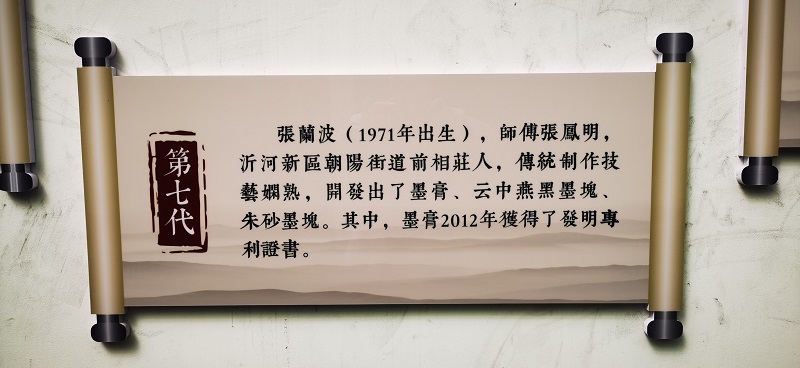 第七代
張蘭波（1971年出生），師傅張鳳明，
沂河新區朝陽街道前相莊人，傳統制作技
藝嫻熟，開發出了墨膏、云中燕黑墨塊、
朱砂墨塊。其中，墨膏2012年獲得了發明專
利證書。